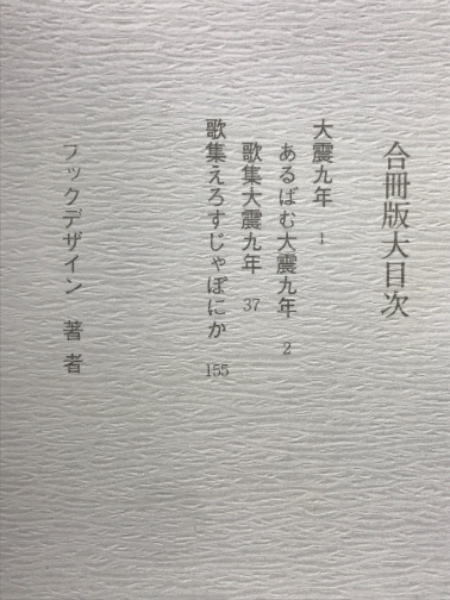 合冊版大目次
大震九年 1
あるばむ大震九年 2
歌集大震九年 37
歌集えろすじゃぽにか 155
ブックデザイン 著者